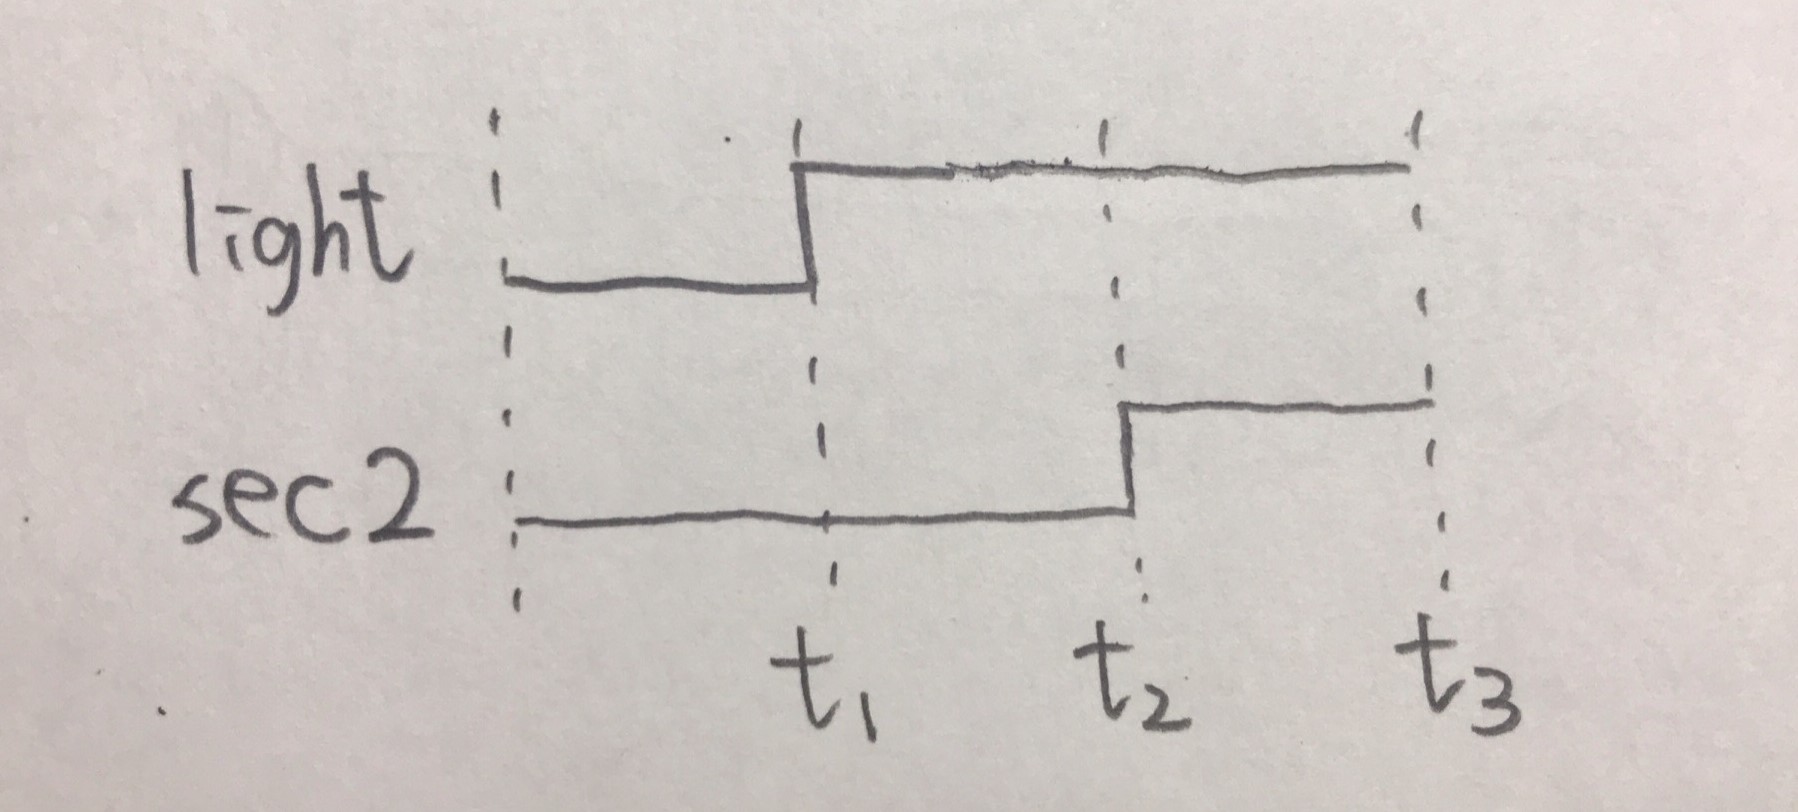 light
sec2
t₁ t₂ t₃